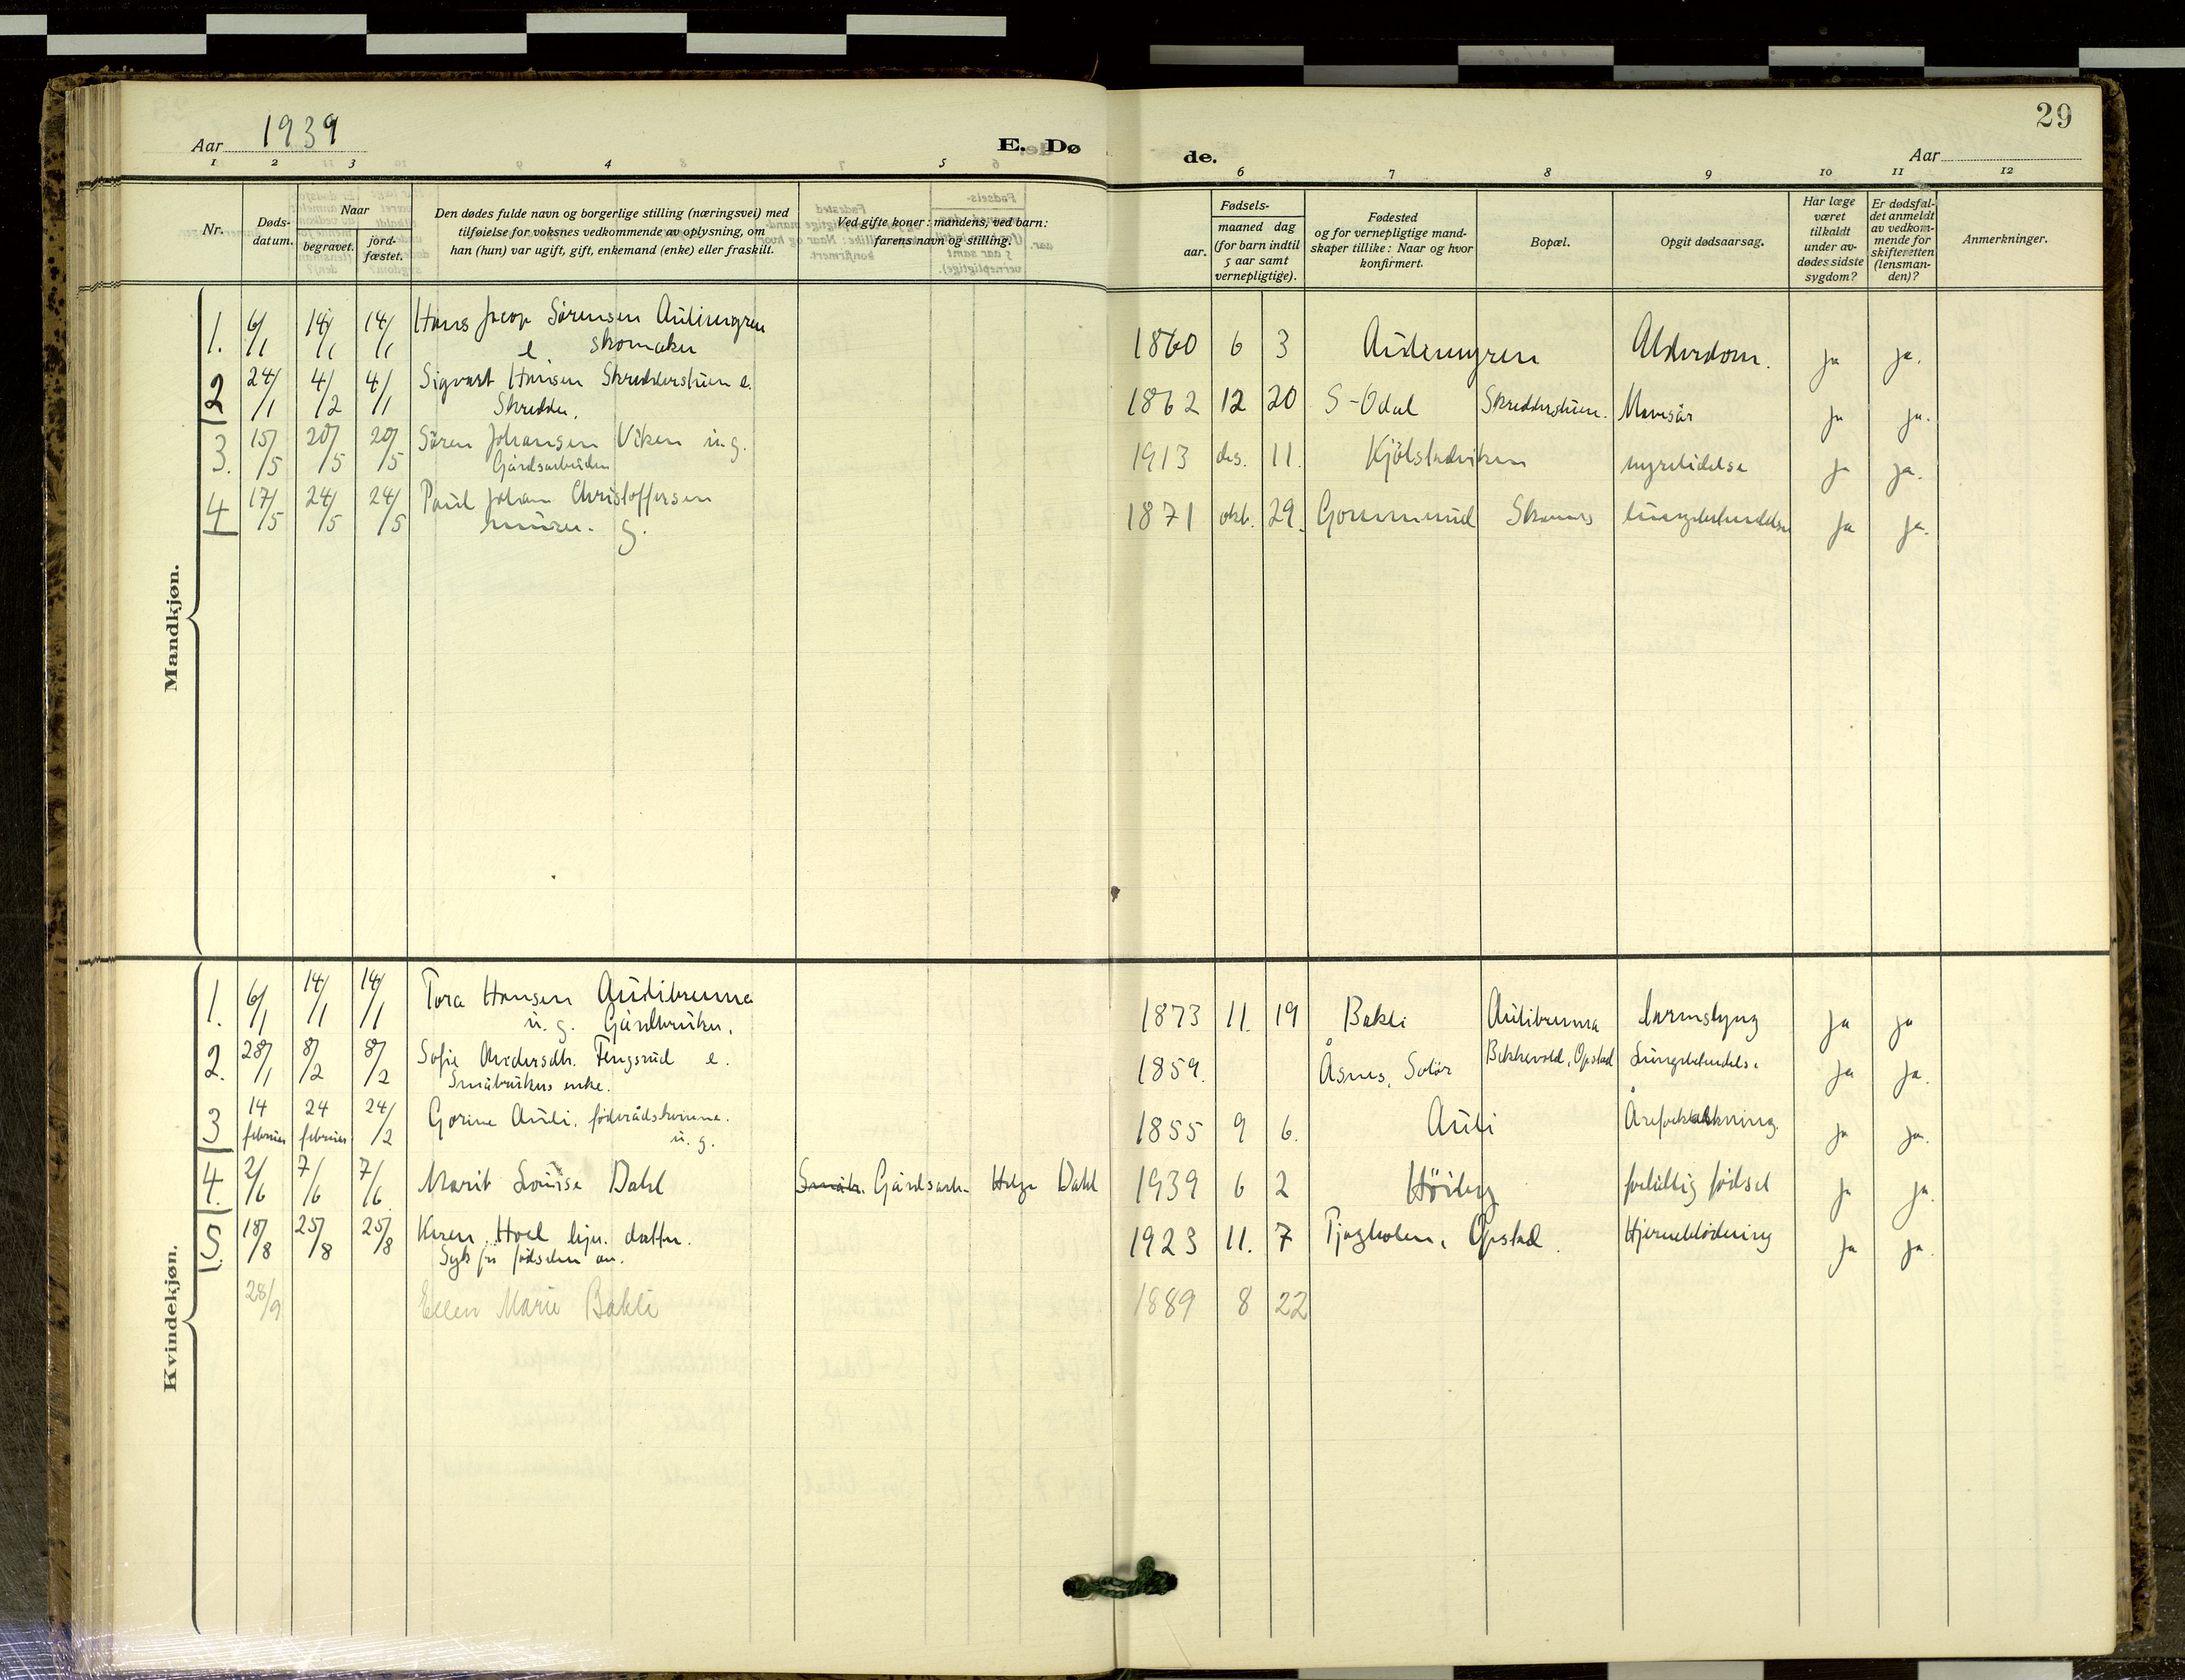 29
Aar 1939
E. Dø
de.
Aar
1 2 3 4 5 6 7 8 9 10 11 12
Nr.
Døds-
datum.
Naar
begravet.
jord-
fæstet.
Den dødes fulde navn og borgerlige stilling (næringsvei) med
tilføielse for voksnes vedkommende av oplysning, om
han (hun) var ugift, gift, enkemand (enke) eller fraskilt.
Ved gifte koner: mandens, ved barn:
farens navn og stilling.
Fødsels-
aar.
maaned dag
(for barn indtil
5 aar samt
vernepligtige).
Fødested
og for vernepligtige mand-
skaper tillike: Naar og hvor
konfirmert.
Bopæl.
Opgit dødsaarsag.
Har læge
været
tilkaldt
under av-
dødes sidste
sygdom?
Er dødsfal-
det anmeldt
av vedkom-
mende for
skifteretten
(lensman-
den)?
Anmerkninger.
Mandkjøn.
1. 6/1 14/1 14/1 Hans Jacop Sørensen 1860 6 3 Alderdom. ja ja.
e. skomaker
2 24/1 4/2 4/1 Sigvart Hansen Skredderstuen e. 1862 12 20 S-Odal Skredderstuen. Mavesår ja ja.
Skredder.
3. 15/5 20/5 20/5 Sören Johansen Viken u.g. 1913 des. 11. Kjölstadviken nyrelidelse ja ja.
Gårdsarbeider
4 17/5 24/5 24/5 Paul Johan Christoffersen 1871 okt. 29. Gommerud lungebetendelse ja ja.
murer. g.
Kvindekjøn.
1. 6/1 14/1 14/1 Tora Hansen Aulibrenna 1873 11. 19 Bakli Aulibrenna tarmslyng ja ja
u. g. Gårdbruker.
2. 28/1 8/2 8/2 Sofie Andersdtr. Tingsrud e. 1859. Åsnes, Solör Bekkevold, Opstad Lungebetendelse ja ja.
Småbrukers enke.
3 14 februar 24 februar 24/2 Gorine Auli, föderådskvinne. 1855 9 6. Auli Åreforkalkning. ja ja.
u. g.
4. 2/6 7/6 7/6 Marit Louise Dahl Småbr. Gårdsarb. Helge Dahl 1939 6 2 Höiby fortidlig födsel ja ja.
5. 18/8 25/8 25/8 Karen Hoel hjv. datter. 1923 11. 7 Tjøgholen, Opstad. Hjerneblödning ja ja.
Syk fra födselen av.
28/9 Ellen Marie Bakli 1889 8 22